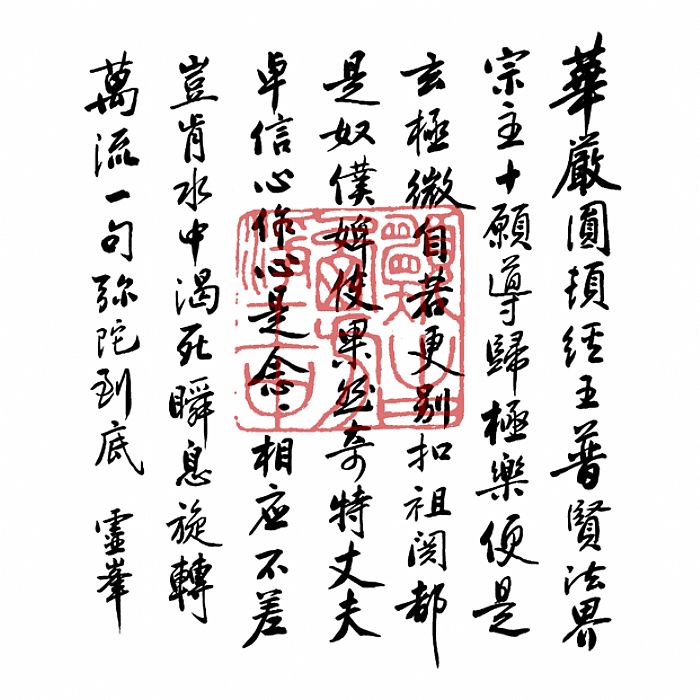 華厳圓頓經王普賢法界
宗主十願導歸極樂便是
玄極微自若更別扣祖関都
是奴僕婢使果然奇特丈夫
卓信心作心是念〻相应不差
豈肯水中渴死瞬息旋轉
萬流一句弥陀到底 靈峯
願生西方淨土中